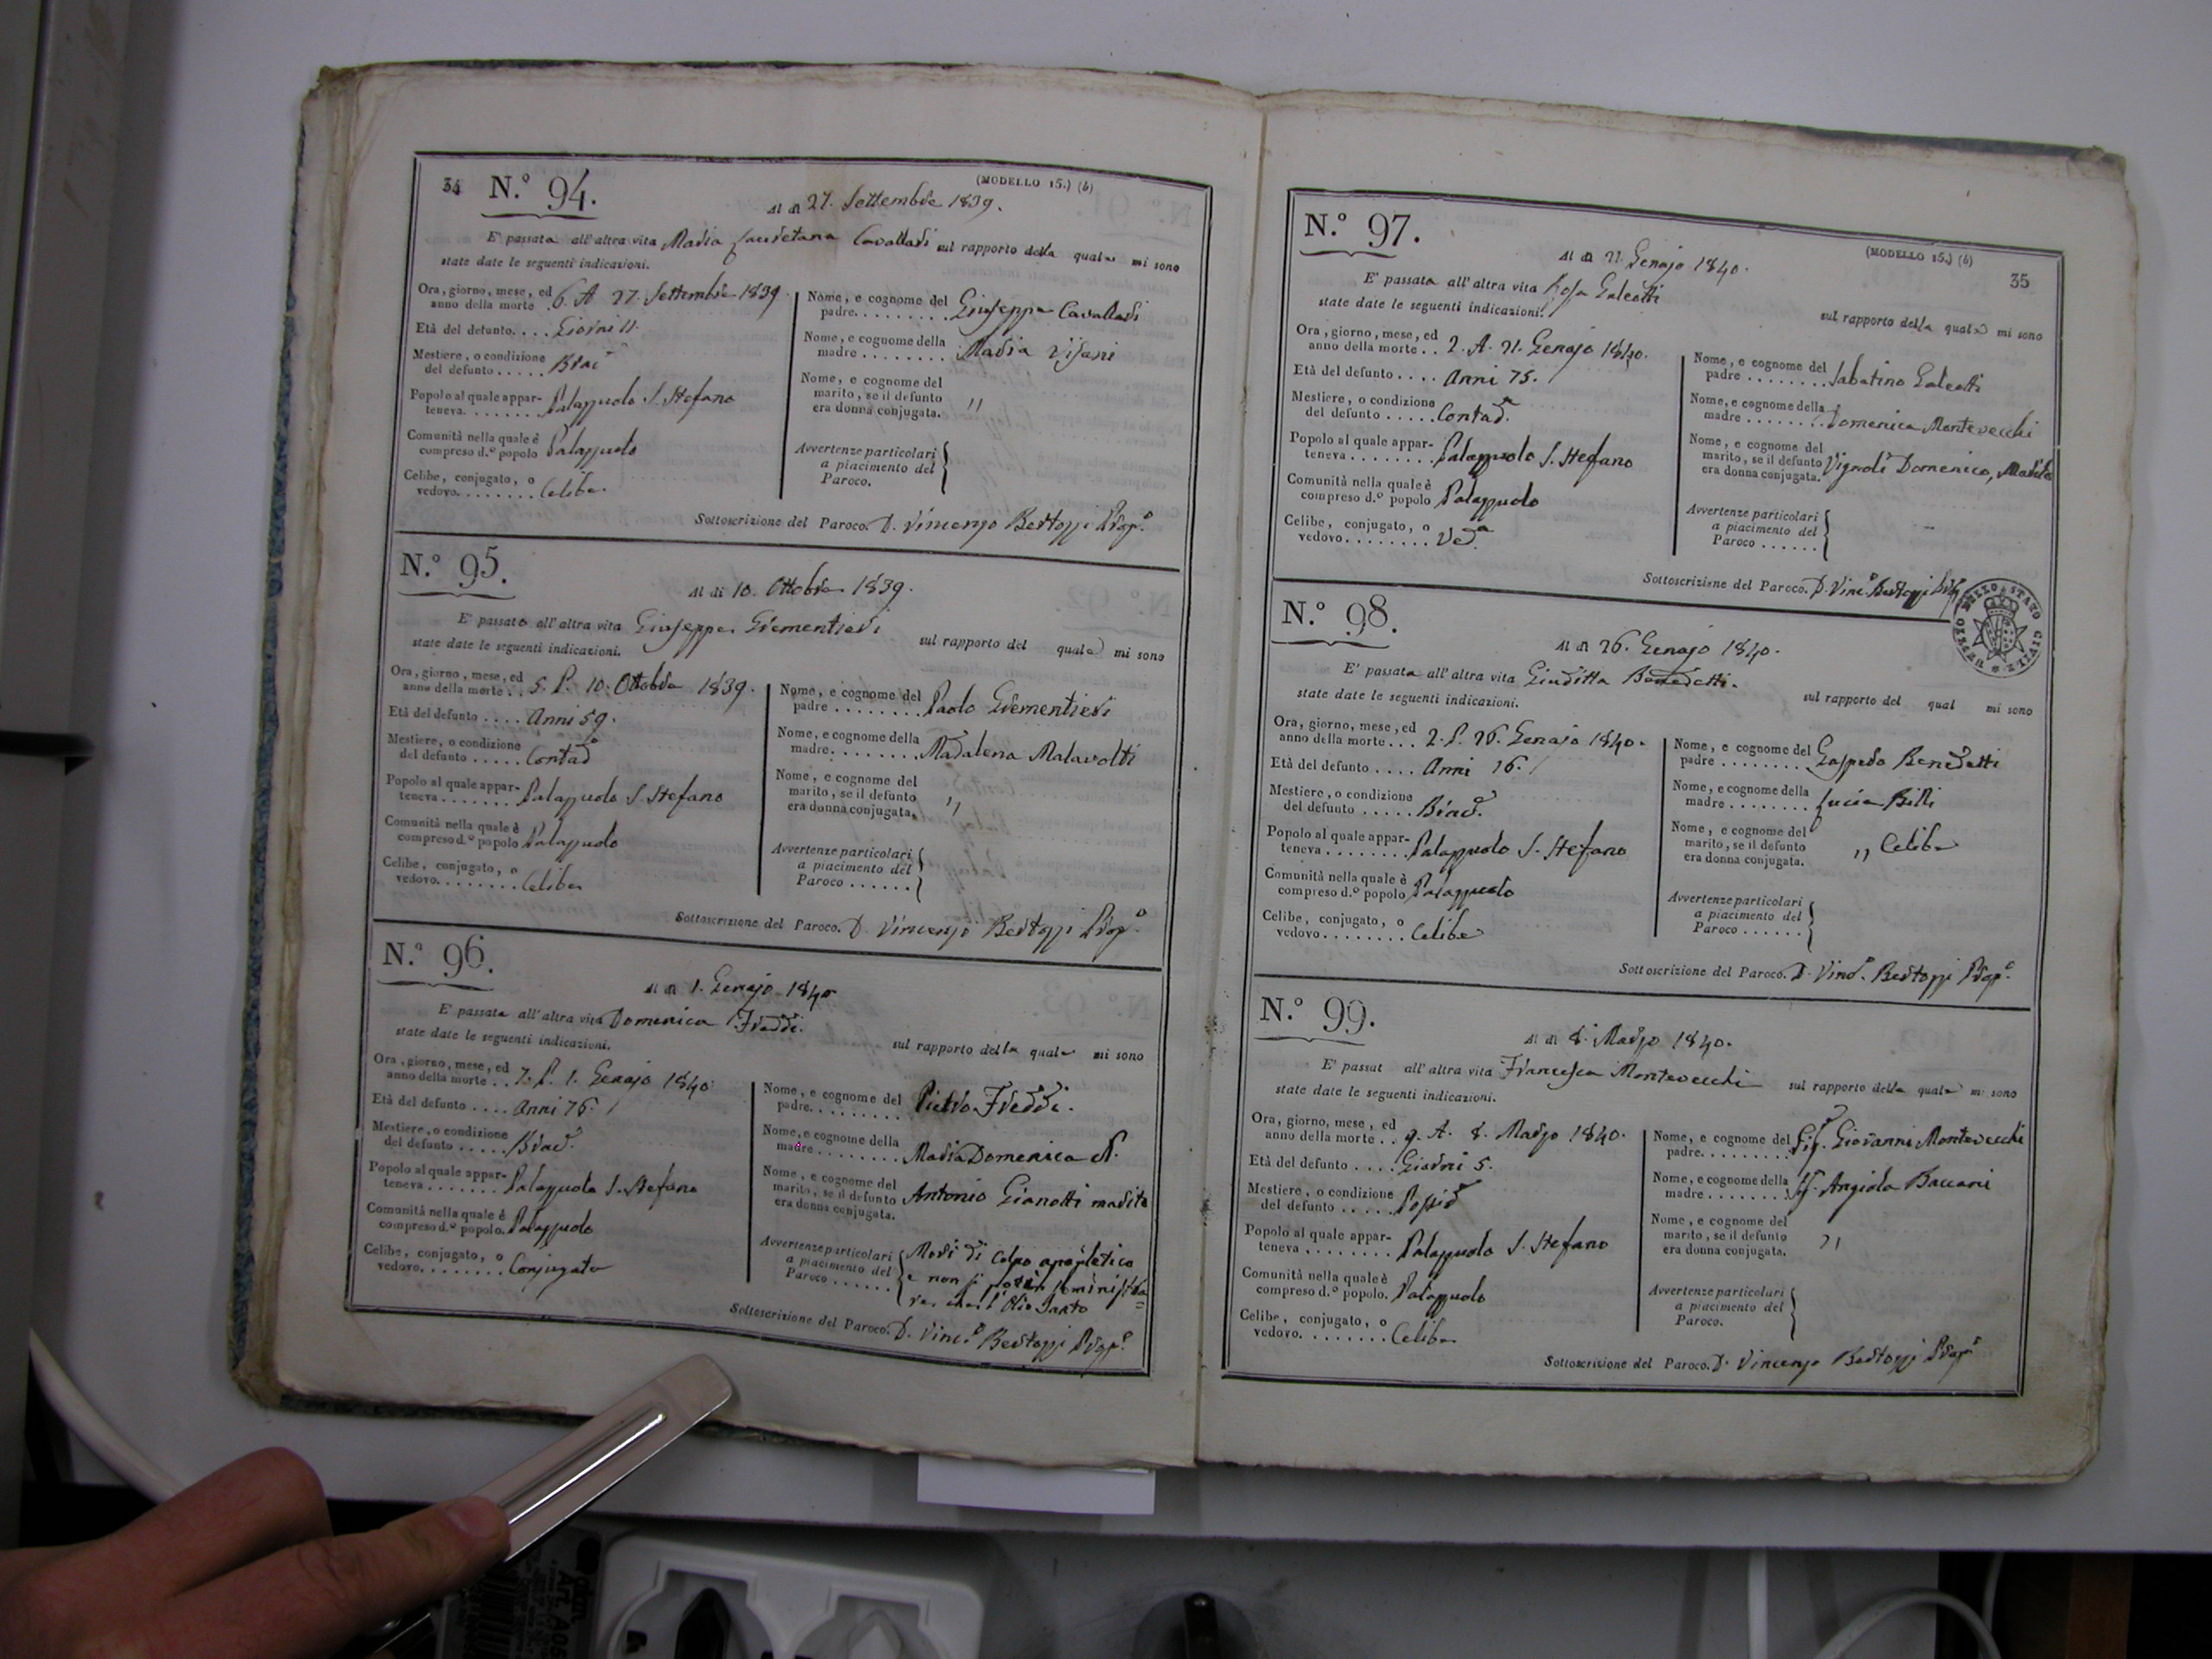 34 N.º 94. (MODELLO 15.) (b)
Al dì 27. Settembre 1839.
E' passata all'altra vita Maria Cavallari sul rapporto della quale mi sono
state date le seguenti indicazioni.
Ora, giorno, mese, ed
anno della morte . 6. A. 27. Settembre 1839.
Età del defunto. . . . Giorni 11.
Mestiere, o condizione
del defunto . . . . .
Popolo al quale appar-
teneva. . . . . . . Palazzuolo S. Stefano
Comunità nella quale è
compreso d.º popolo Palazzuolo
Celibe, conjugato, o
vedovo. . . . . . . . Celibe
Nome, e cognome del
padre. . . . . . . . . Giuseppe Cavallari
Nome, e cognome della
madre . . . . . . . . Maria Visani
Nome, e cognome del
marito, se il defunto
era donna conjugata. "
Avvertenze particolari
a piacimento del
Paroco.
Sottoscrizione del Paroco. D. Vincenzo Bertozzi Prop.º
N.º 95.
Al dì 10. Ottobre 1839.
E' passato all'altra vita Giuseppe Grementieri sul rapporto del quale mi sono
state date le seguenti indicazioni.
Ora, giorno, mese, ed
anno della morte . . 5. P. 10. Ottobre 1839.
Età del defunto . . . . Anni 59.
Mestiere, o condizione
del defunto . . . . . Contad.e
Popolo al quale appar-
teneva . . . . . . . Palazzuolo S. Stefano
Comunità nella quale è
compreso d.º popolo Palazzuolo
Celibe, conjugato, o
vedovo. . . . . . . . Celibe
Nome, e cognome del
padre . . . . . . . . Paolo Grementieri
Nome, e cognome della
madre. . . . . . . . Madalena Malavolti
Nome, e cognome del
marito, se il defunto
era donna conjugata. "
Avvertenze particolari
a piacimento del
Paroco . . . . . .
Sottoscrizione del Paroco. D. Vincenzo Bertozzi Prop.º
N.º 96.
Al dì 1. Genajo 1840
E' passata all'altra vita Domenica Freddi. sul rapporto della quale mi sono
state date le seguenti indicazioni.
Ora, giorno, mese, ed
anno della morte . . 7. P. 1. Genajo 1840
Età del defunto . . . . Anni 76.
Mestiere, o condizione
del defunto . . . . . Brac.e
Popolo al quale appar-
teneva . . . . . . . Palazzuolo S. Stefano
Comunità nella quale è
compreso d.º popolo. Palazzuolo
Celibe, conjugato, o
vedovo. . . . . . . . Conjugata
Nome, e cognome del
padre. . . . . . . . . Pietro Freddi.
Nome, e cognome della
madre . . . . . . . . Maria Domenica
Nome, e cognome del
marito, se il defunto
era donna conjugata. Antonio Gianotti marito
Avvertenze particolari
a piacimento del
Paroco . . . . . .
Morì di colpo apopletico
e non si potè somministra=
re l'Olio Santo
Sottoscrizione del Paroco. D. Vinc.º Bertozzi Prop.º
N.º 97. (MODELLO 15.) (b) 35
Al dì 21. Genajo 1840.
E' passata all'altra vita Rosa Galeotti sul rapporto della quale mi sono
state date le seguenti indicazioni.
Ora, giorno, mese, ed
anno della morte . . 2. A. 21. Genajo 1840.
Età del defunto . . . . Anni 75.
Mestiere, o condizione
del defunto . . . . . Contad.a
Popolo al quale appar-
teneva . . . . . . . . Palazzuolo S. Stefano
Comunità nella quale è
compreso d.º popolo Palazzuolo
Celibe, conjugato, o
vedovo. . . . . . . . Ved.a
Nome, e cognome del
padre . . . . . . . . Sabatino Galeotti
Nome, e cognome della
madre . . . . . . . . Domenica Montevecchi
Nome, e cognome del
marito, se il defunto
era donna conjugata. Vignoli Domenico, Marito
Avvertenze particolari
a piacimento del
Paroco . . . . . .
Sottoscrizione del Paroco. D. Vinc.º Bertozzi
UFFIZIO DELLO STATO CIVILE
N.º 98.
Al dì 26. Genajo 1840.
E' passata all'altra vita Giuditta Benedetti. sul rapporto del qual mi sono
state date le seguenti indicazioni.
Ora, giorno, mese, ed
anno della morte . . . 2. P. 26. Genajo 1840.
Età del defunto . . . . Anni 16.
Mestiere, o condizione
del defunto . . . . . Brac.e
Popolo al quale appar-
teneva . . . . . . . . Palazzuolo S. Stefano
Comunità nella quale è
compreso d.º popolo Palazzuolo
Celibe, conjugato, o
vedovo. . . . . . . . Celibe
Nome, e cognome del
padre . . . . . . . . . Gaspero Benedetti
Nome, e cognome della
madre . . . . . . . . Lucia Billi
Nome, e cognome del
marito, se il defunto
era donna conjugata. " Celibe
Avvertenze particolari
a piacimento del
Paroco . . . . . .
Sottoscrizione del Paroco. D. Vinc.º Bertozzi Prop.º
N.º 99.
Al dì 8. Marzo 1840.
E' passat all'altra vita Francesca Montevecchi sul rapporto della quale mi sono
state date le seguenti indicazioni.
Ora, giorno, mese, ed
anno della morte . . 9. A. 8. Marzo 1840.
Età del defunto . . . . Giorni 5.
Mestiere, o condizione
del defunto . . . . . Possid.e
Popolo al quale appar-
teneva . . . . . . . . Palazzuolo S. Stefano
Comunità nella quale è
compreso d.º popolo. Palazzuolo
Celibe, conjugato, o
vedovo. . . . . . . . Celibe
Nome, e cognome del
padre. . . . . . . . . Sig.r Giovanni Montevecchi
Nome, e cognome della
madre . . . . . . . . Angiola Baccani
Nome, e cognome del
marito, se il defunto
era donna conjugata. "
Avvertenze particolari
a piacimento del
Paroco.
Sottoscrizione del Paroco. D. Vincenzo Bertozzi Prop.º